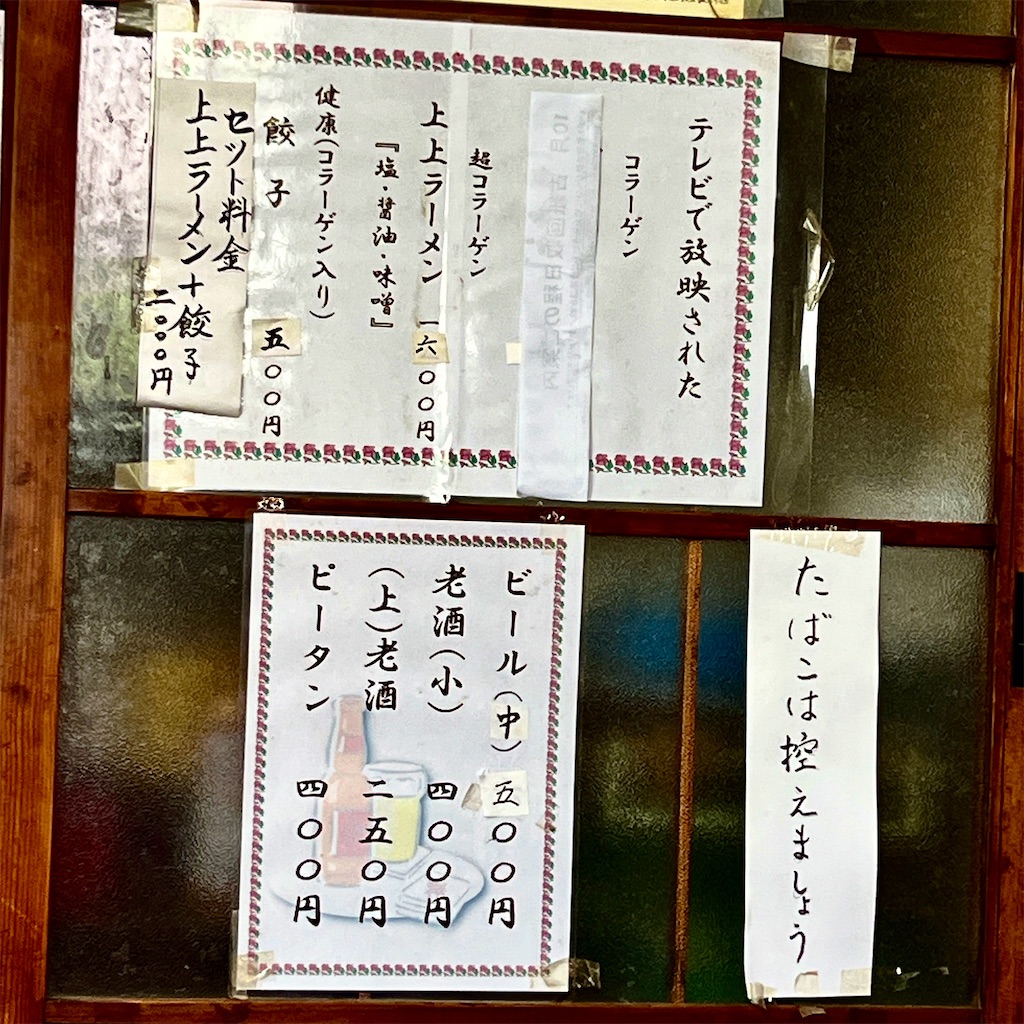 テレビで放映された
コラーゲン
超コラーゲン
上上ラーメン 一六〇〇円
『塩・醤油・味噌』
健康(コラーゲン入り)
餃子 五〇〇円
セット料金
上上ラーメン+餃子
二〇〇〇円
ビール(中) 五〇〇円
老酒(小) 四〇〇円
(上)老酒 二五〇円
ピータン 四〇〇円
たばこは控えましょう